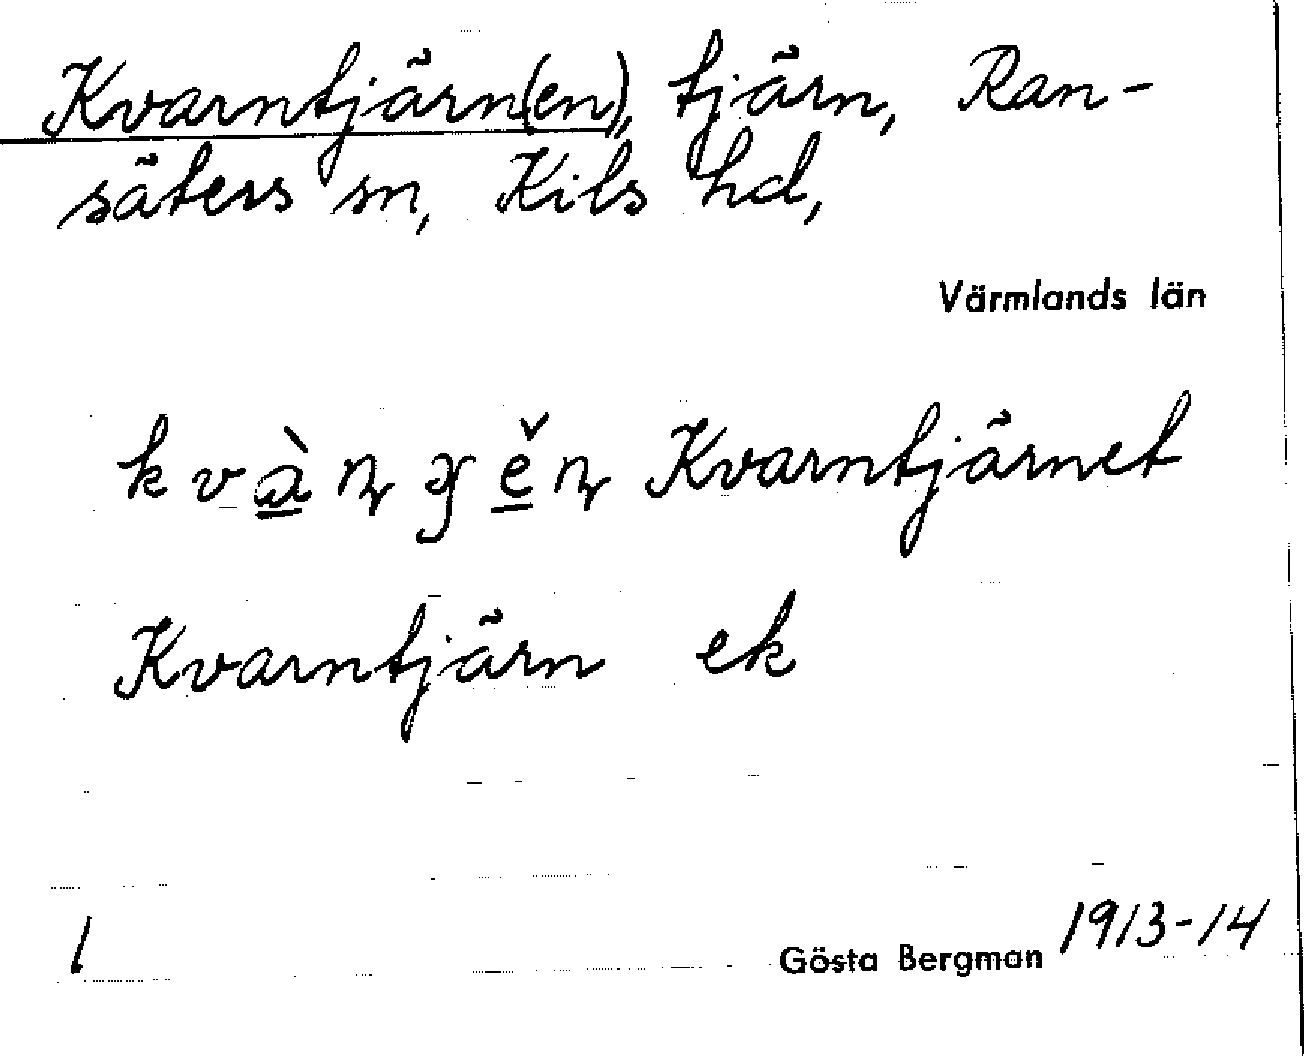 Kvarntjärn(en), tjärn, Ran-
säters sn, Kils hd,
Värmlands län
Kvarntjärnet
Kvarntjärn ek
1
Gösta Bergman 1913-14